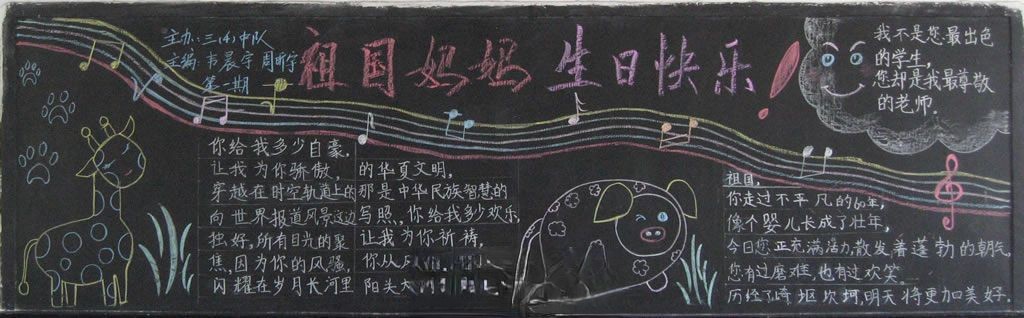 主办:三(4)中队
主编:韦晨宇 周昕宁
第一期
祖国妈妈 生日快乐!
我不是您最出色
的学生,
您却是我最尊敬
的老师.
你给我多少自豪,
让我为你骄傲,
穿越在时空轨道上的
向世界报道风景这边
独好,所有目光的聚
焦,因为你的风骚,
闪耀在岁月长河里
的华夏文明,
那是中华民族智慧的
写照,你给我多少欢乐,
让我为你祈祷,
你从
阳头
祖国,
你走过不平凡的60年,
像个婴儿长成了壮年,
今日您正充满活力,散发着蓬勃的朝气,
您有过磨难也有过欢笑
历经了崎岖坎坷,明天将更加美好.